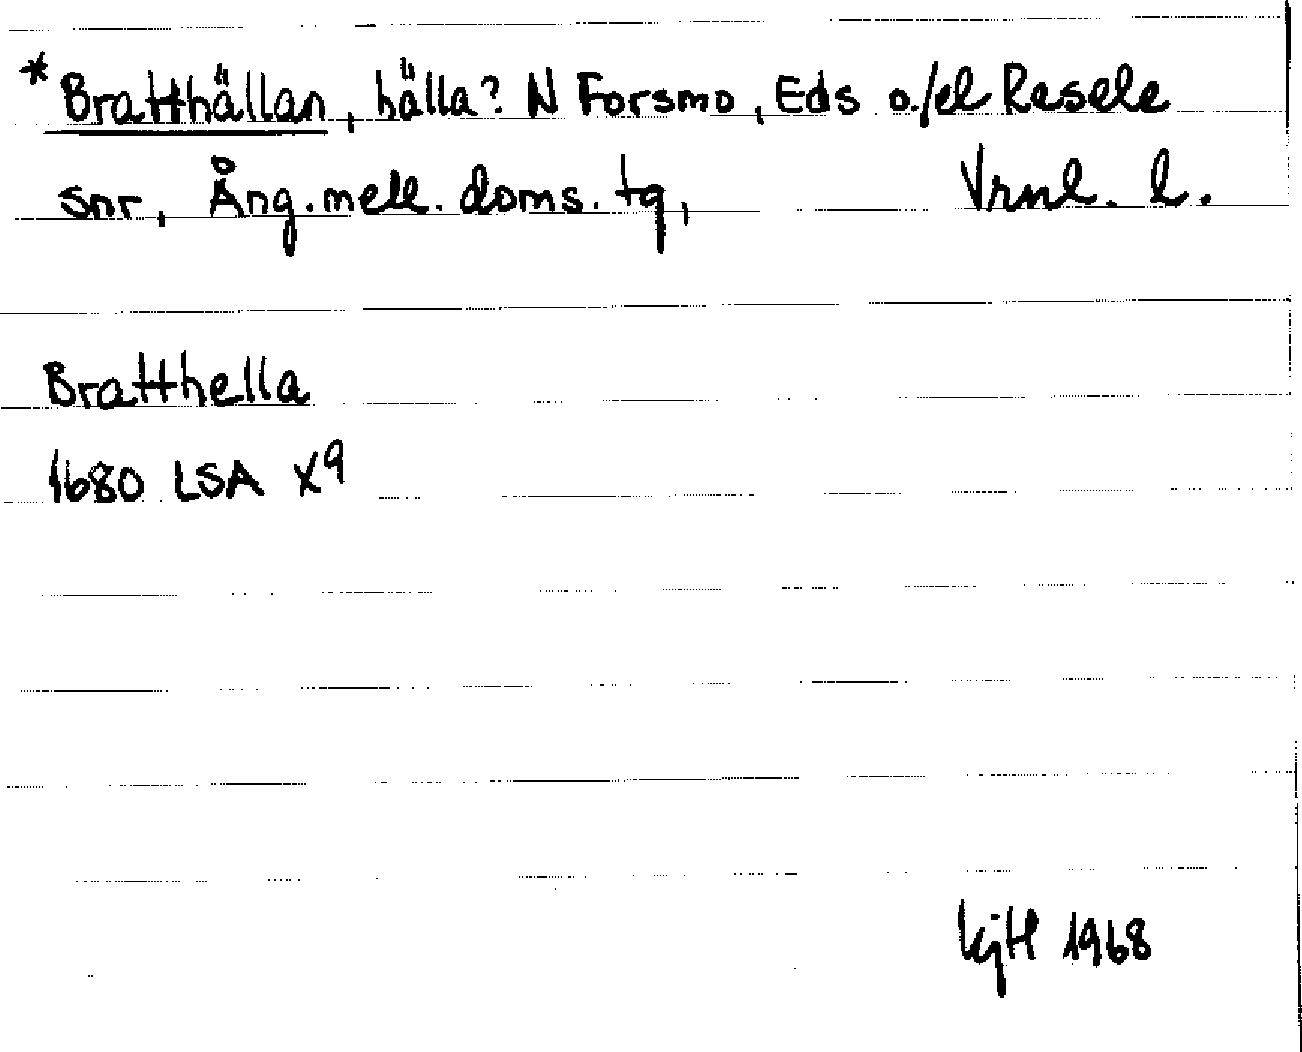 *Bratthällan, hälla? N Forsmo, Eds o./el Resele
snr, Ång. mell. doms. tg, Vrnl. l.
Bratthella
1680 LSA X9
kjH 1968